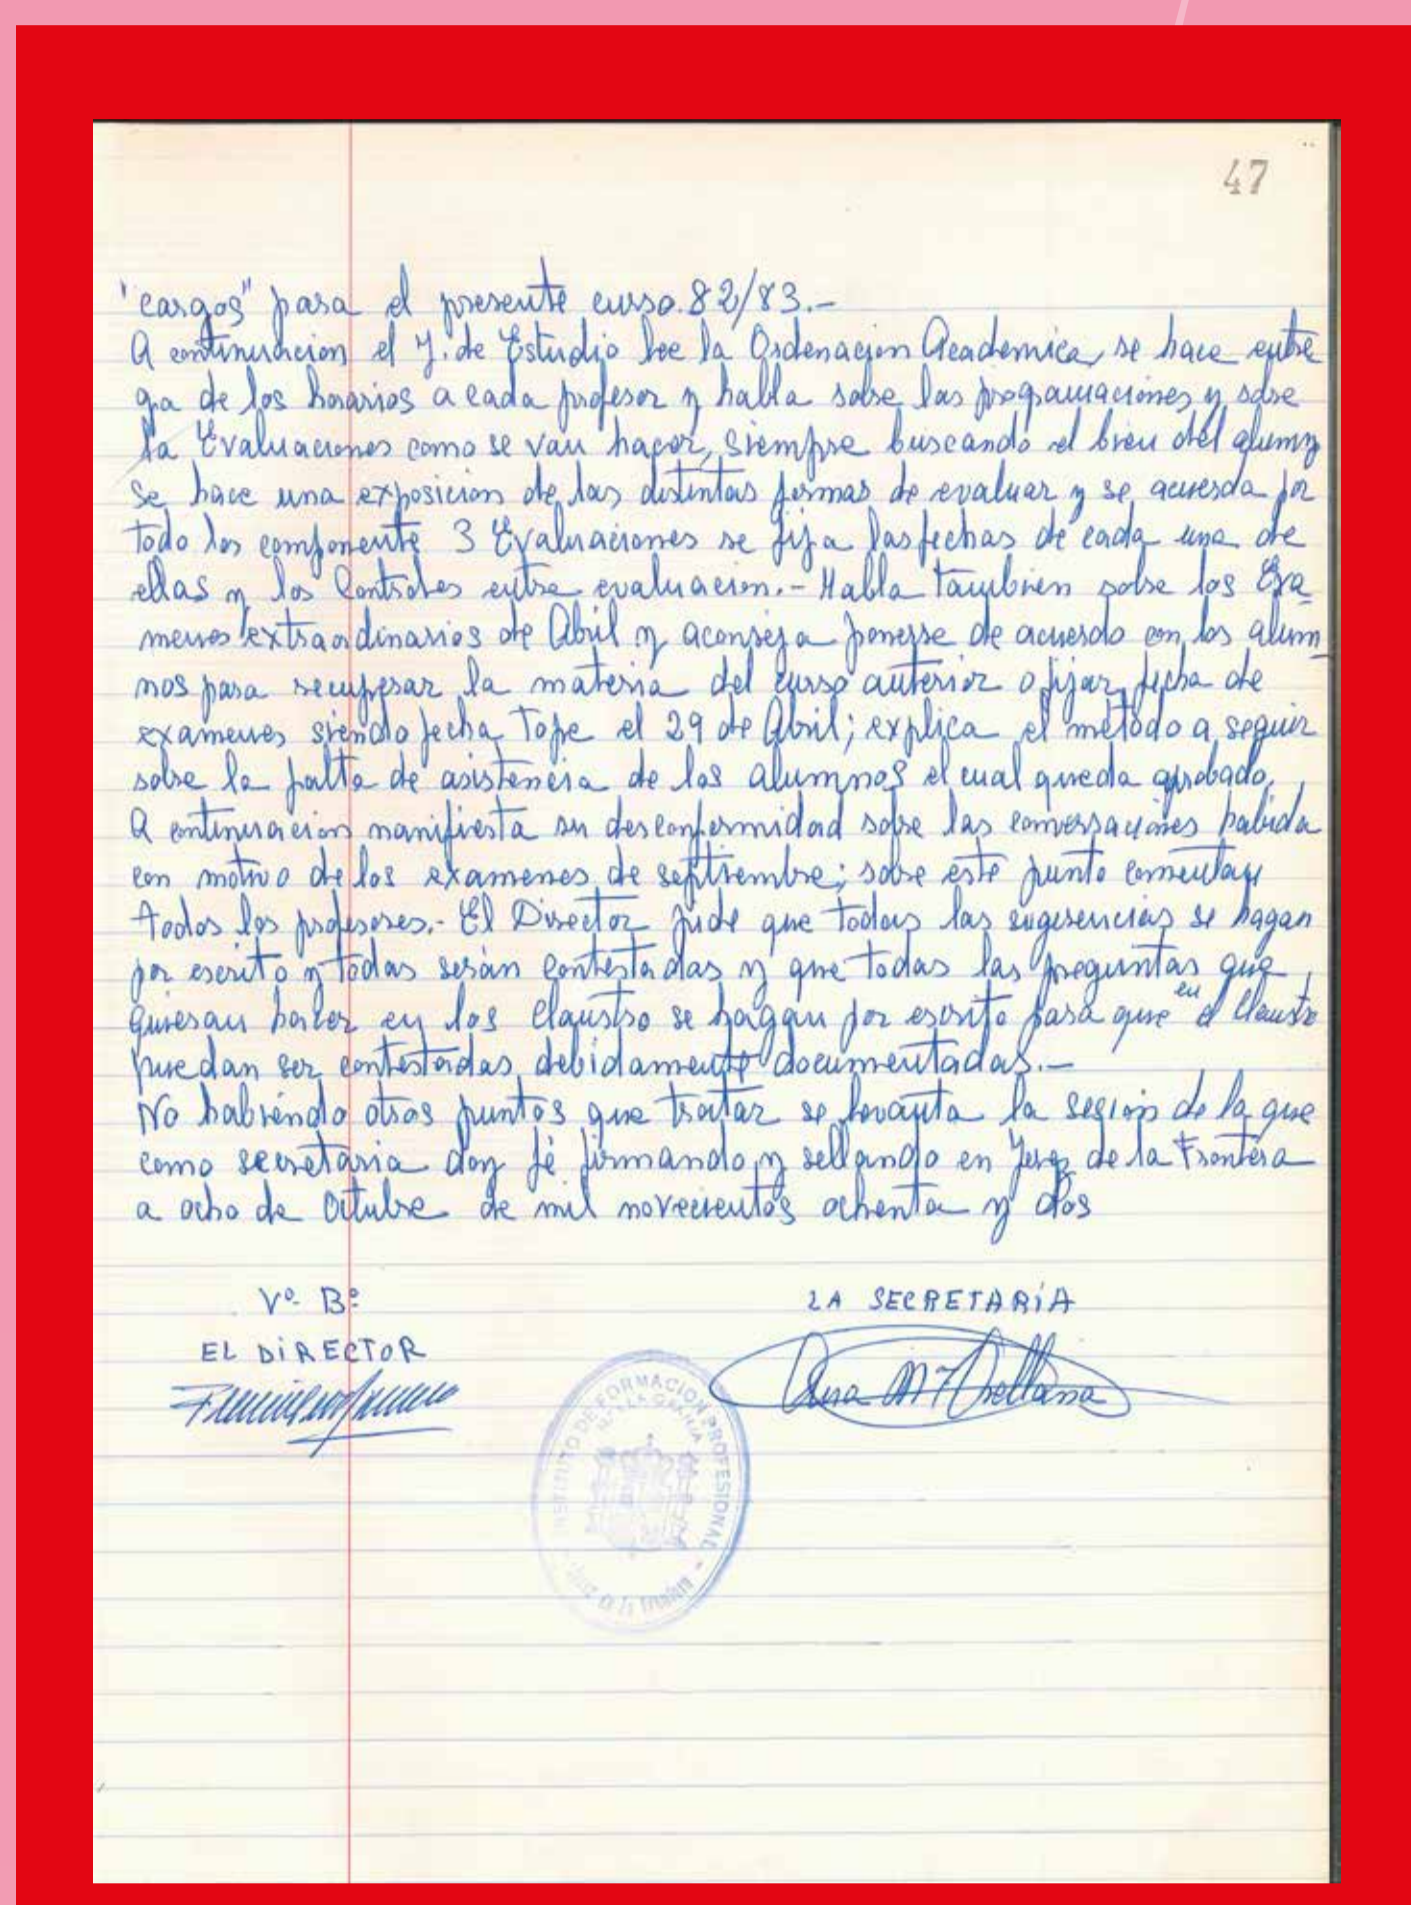 47
"cargos" para el presente curso 82/83.-
A continuacion el J. de Estudio lee la Ordenacion Academica, se hace entre
ga de los horarios a cada profesor y habla sobre las programaciones y sobre
la Evaluaciones como se van hacer, siempre buscando el bien del alumno
se hace una exposicion de las distintas formas de evaluar y se acuerda por
todo los componente 3 Evaluaciones se fija las fechas de cada una de
ellas y los Controles entre evaluacion.- Habla tambien sobre los Exa-
menes extraordinarios de Abril y aconseja ponerse de acuerdo con los alum-
nos para recuperar la materia del curso anterior o fijar fecha de
examenes siendo fecha Tope el 29 de Abril; explica el metodo a seguir
sobre la falta de asistencia de los alumnos el cual queda aprobado.
A continuacion manifiesta su desconformidad sobre las conversaciones habida
con motivo de los examenes de septiembre; sobre este punto comentan
todos los profesores.- El Director pide que todas las sugerencias se hagan
por escrito y todas serán contestadas y que todas las preguntas que
quieran hacer en los Claustro se hagan por escrito para que en el Claustro
puedan ser contestadas debidamente documentadas.-
No habiendo otros puntos que tratar se levanta la sesion de la que
como secretaria doy fé firmando y sellando en Jerez de la Frontera
a ocho de Octubre de mil novecientos ochenta y dos
Vº Bº
LA SECRETARÍA
EL DIRECTOR
Ana Mª Orellana
INSTITUTO DE FORMACION PROFESIONAL
LA GRANJA
Jerez de la Frontera